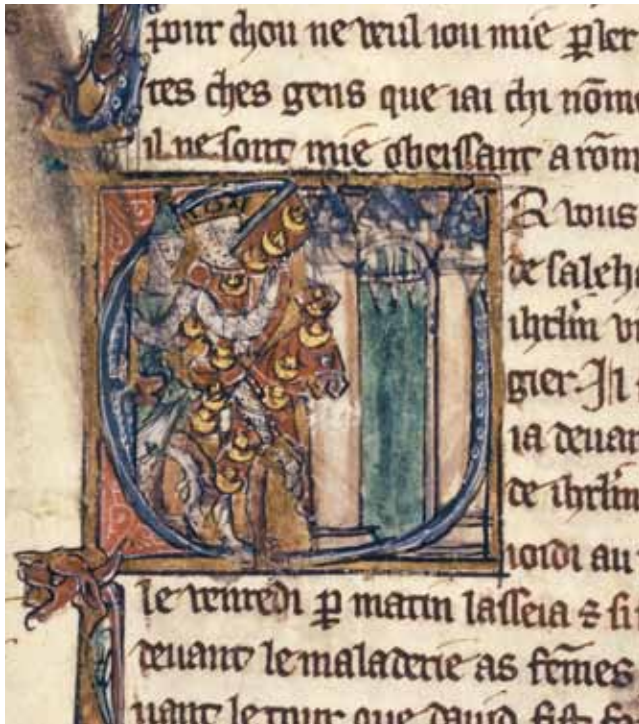 pour chou ne veul iou mie ꝑler
tes ches gens que iai chi nõm
il ne sont mie obeissant a rõm
R vous
de saleh
ihrłm v
gier. Il
ia deuan
de ihrłm
ioidi au
le venredi ꝑ matin lasseia ⁊ si
deuant le maladerie as fẽmes
uant le tour que dauid